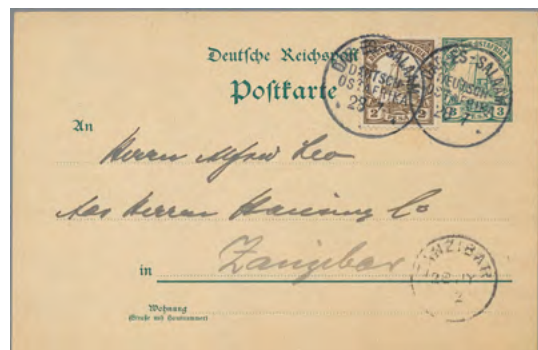 Deutsche Reichspost
Postkarte
DAR-ES-SALAAM
DEUTSCH-
OSTAFRIKA
29 7
DAR-ES-SALAAM
DEUTSCH-
OSTAFRIKA
29 7
2 2
3 3
An
Herrn Alfred Leo
Herren Hansing Co
in Zanzibar
ZANZIBAR
2
Wohnung
(Straße und Hausnummer)